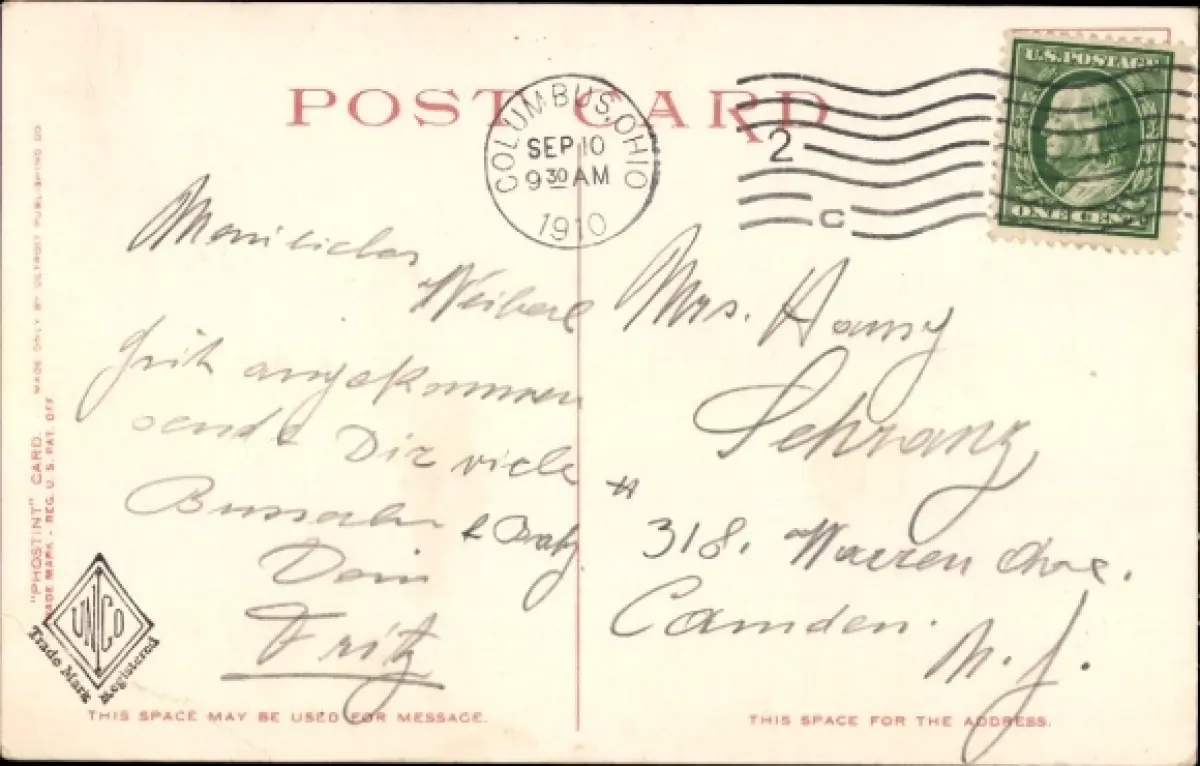 POST CARD
COLUMBUS, OHIO
SEP 10
9 30 AM
1910
2
C
U.S. POSTAGE
ONE CENT
Weiberl
angekommen
sende Dir viele
Dein
Fritz
Mrs. Hanny
Schranz
318. Warren Ave.
Camden.
N. J.
"PHOSTINT" CARD. MADE ONLY BY DETROIT PUBLISHING CO
TRADE MARK - REG. U. S. PAT. OFF
UNICO
Trade Mark Registered
THIS SPACE MAY BE USED FOR MESSAGE.
THIS SPACE FOR THE ADDRESS.